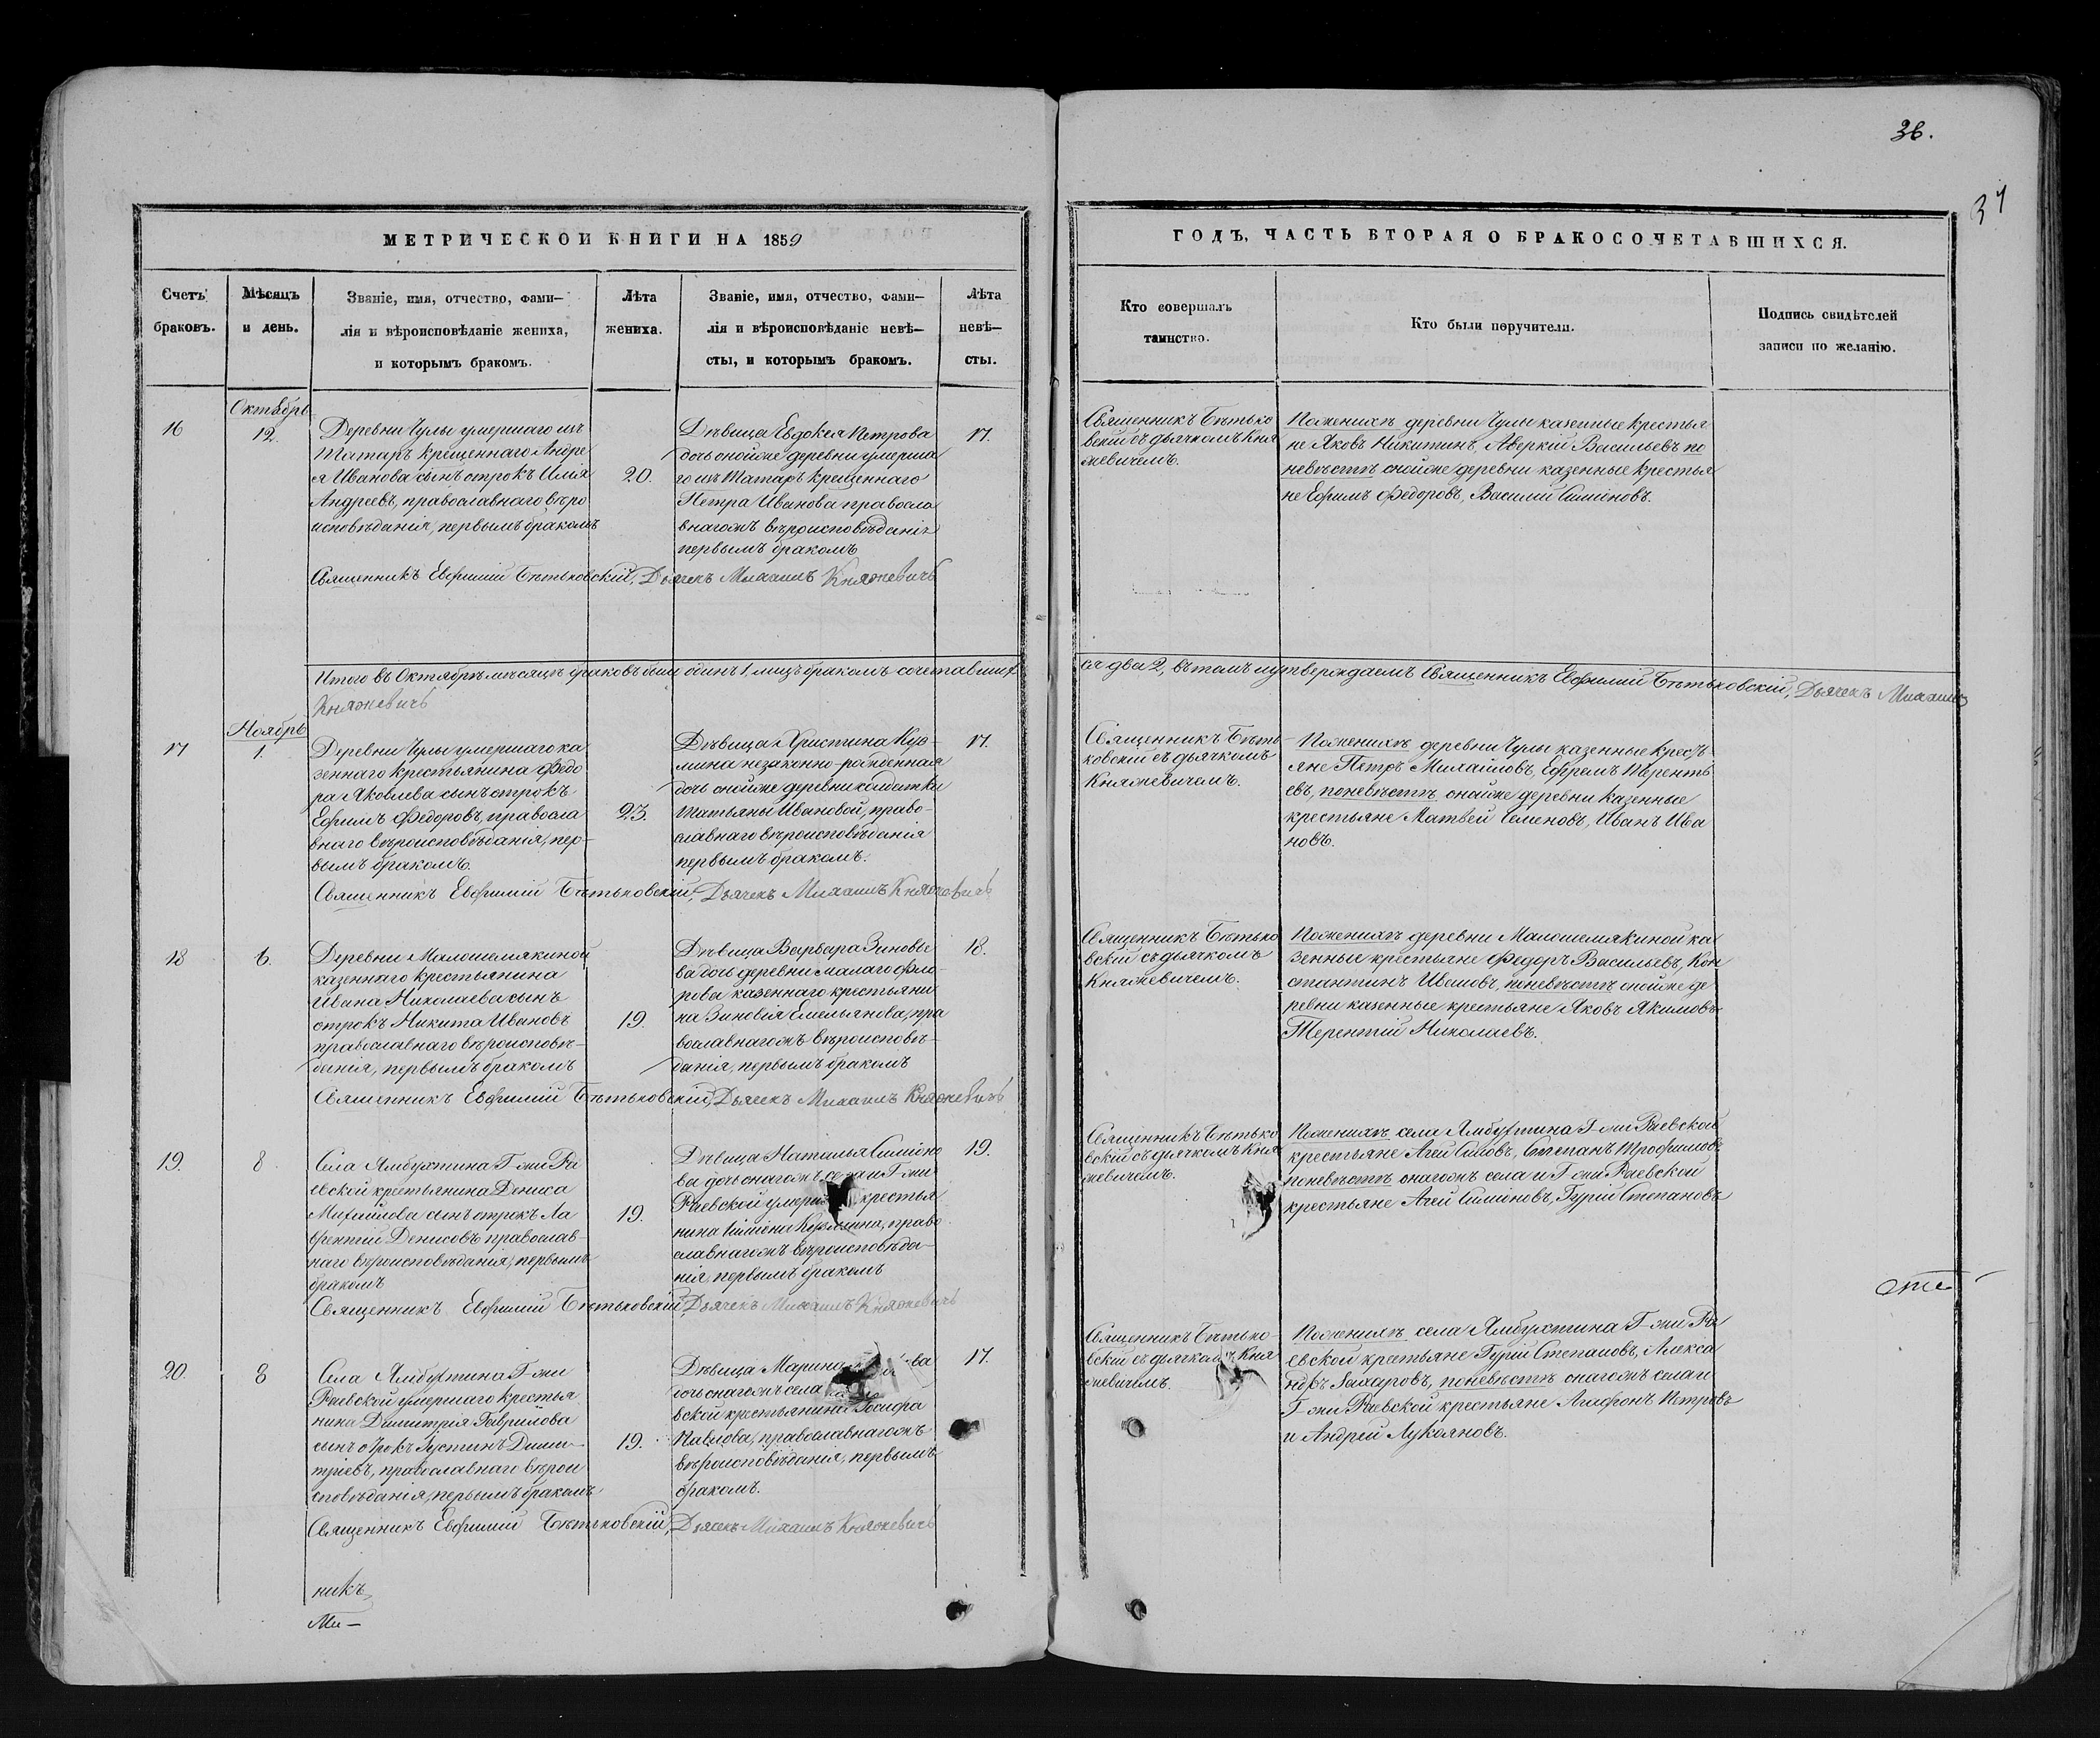 36.
37
МЕТРИЧЕСКОИ КНИГИ НА 1859
ГОДЪ, ЧАСТЬ ВТОРАЯ О БРАКОСОЧЕТАВШИХСЯ.
Счетъ браковъ.
Мѣсяцъ и день.
Званіе, имя, отчество, фами-
лія и вѣроисповѣданіе жениха,
и которымъ бракомъ.
Лѣта
жениха.
Званіе, имя, отчество, фами-
лія и вѣроисповѣданіе невѣ-
сты, и которымъ бракомъ.
Лѣта
невѣ-
сты.
Кто совершалъ
таинство.
Кто были поручители.
Подпись свидѣтелей
записи по желанію.
16
Октябрь
12.
Деревни Чулы умершаго изъ
Татаръ крещеннаго Андре
я Иванова сынъ отрокъ Илія
Андреевъ, православнаго вѣро
исповѣданія, первымъ бракомъ
20.
Дѣвица Евдокея Петрова
дочь онойже деревни умерша
го изъ Татаръ крещеннаго
Петра Иванова правосла
внагожъ вѣроисповѣданія
первымъ бракомъ
17.
Священникъ Бѣтько
вскій съ дьячкомъ Кня
жевичемъ.
Поженихѣ деревни Чулы казенные крестья
не Яковъ Никитинъ, Аверкій Васильевъ по
невѣстѣ онойже деревни казенные крестья
не Ефимъ Федоровъ, Василій Симіоновъ.
Священникъ Евфимій Бѣтьковскій, Дьячекъ Михаилъ Княжевичъ
Итого въ Октябрѣ мѣсяцѣ браковъ было одинъ 1, лицъ бракомъ сочетавших
ся два 2, въ томъ и утверждаемъ Священникъ Евфимій Бѣтьковскій, Дьячекъ Михаилъ
Княжевичъ
17
Ноябрь
1.
Деревни Чулы умершаго ка
зеннаго крестьянина Федо
ра Яковлева сынъ отрокъ
Ефимъ Федоровъ, правосла
внаго вѣроисповѣданія, пер-
вымъ бракомъ.
23.
Дѣвица Христина Куз-
мина незаконно-рожденная
дочь онойже деревни солдатки
Татьяны Ивановой, право-
славнаго вѣроисповѣданія
первымъ бракомъ.
17.
Священникъ Бѣть-
ковскій съ дьячкомъ
Княжевичемъ.
Поженихѣ деревни Чулы казенные кресть-
яне Петръ Михайловъ, Ефремъ Теренть
евъ, поневѣстѣ онойже деревни казенные
крестьяне Матвей Семеновъ, Иванъ Ива
новъ.
Священникъ Евфимій Бѣтьковскій, Дьячекъ Михаилъ Княжевичъ
18
6.
Деревни Малошемякиной
казеннаго крестьянина
Ивана Николаева сынъ
отрокъ Никита Ивановъ
православнаго вѣроисповѣ-
данія, первымъ бракомъ
19.
Дѣвица Варвара Зиновье
ва дочь деревни малаго Фло-
рова казеннаго крестьяни
на Зиновія Емельянова, пра
вославнагожъ вѣроисповѣ-
данія, первымъ бракомъ
18.
Священникъ Бѣтько
вскій съ дьячкомъ
Княжевичемъ.
Поженихѣ деревни Малошемякиной ка
зенные крестьяне Федоръ Васильевъ, Кон
стантинъ Ивановъ, поневѣстѣ онойже де
ревни казенные крестьяне Яковъ Якимовъ
Терентій Николаевъ.
Священникъ Евфимій Бѣтьковскій, Дьячекъ Михаилъ Княжевичъ
19.
8
Села Ямбухтина Г-жи Ра
евской крестьянина Дениса
Михайлова сынъ отрокъ Ла
врентій Денисовъ православ-
наго вѣроисповѣданія, первымъ
бракомъ
19.
Дѣвица Наталья Симіоно
ва дочь онагожъ села и Г-жи
Раевской крестья
нина Симіона Кузмина, право
славнагожъ вѣроисповѣда-
нія, первымъ бракомъ
19.
Священникъ Бѣтько
вскій съ дьячкомъ Кня
жевичемъ.
Поженихѣ села Ямбухтина Г-жи Раевской
крестьяне Агей Степанъ Трофимовъ
поневѣстѣ онагожъ села и Г-жи Раевской
крестьяне Агей Симіоновъ, Гурій Степановъ
Священникъ Евфимій Бѣтьковскій, Дьячекъ Михаилъ Княжевичъ
20.
8
Села Ямбухтина Г-жи
Раевской умершаго крестья
нина Димитрія Гаврилова
сынъ отрокъ Іустинъ Дими-
тріевъ, православнаго вѣрои
сповѣданія, первымъ бракомъ
19.
Дѣвица Марина
дочь онагожъ села
вской крестьянина Іосифа
Павлова, православнагожъ
вѣроисповѣданія, первымъ
бракомъ.
17.
Священникъ Бѣтько-
вскій съ дьячкомъ Кня
жевичемъ.
Поженихѣ села Ямбухтина Г-жи Ра
евской крестьяне Гурій Степановъ, Алекса
ндръ Захаровъ, поневѣстѣ онагожъ села и
Г-жи Раевской крестьяне Агафонъ Петровъ
и Андрей Лукояновъ.
Священникъ Евфимій Бѣтьковскій, Дьячекъ Михаилъ Княжевичъ
никъ
Ми-